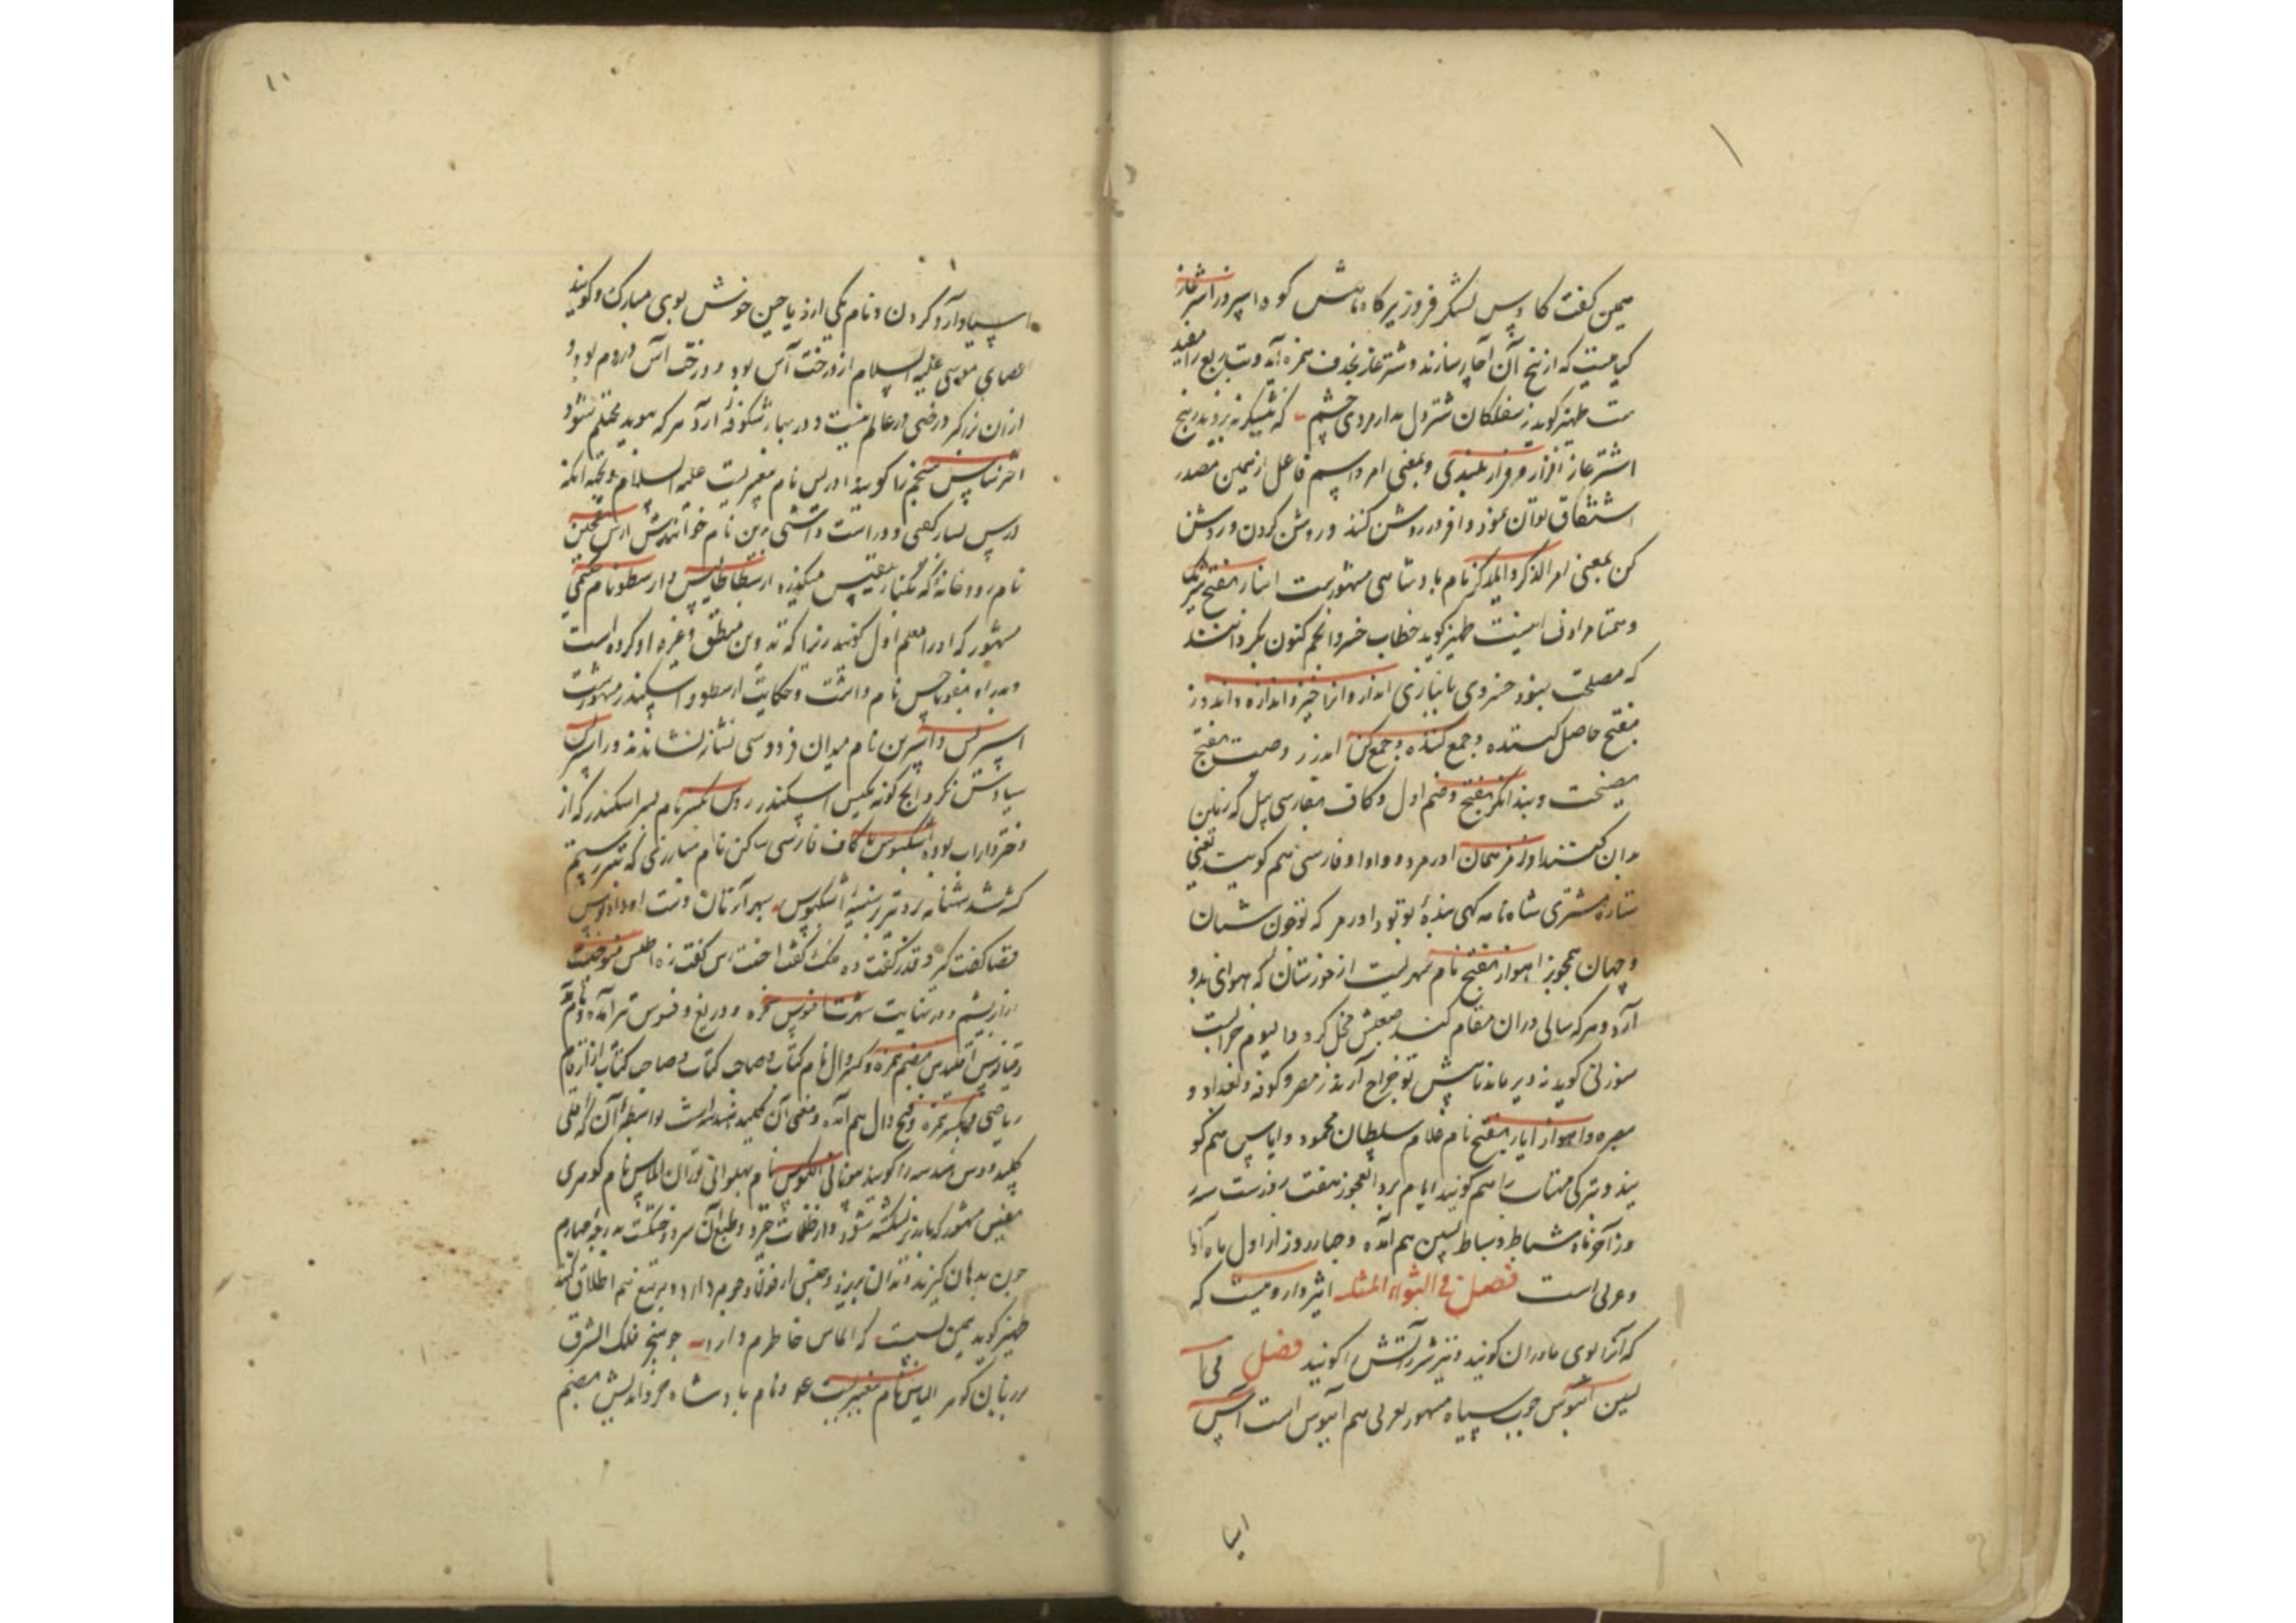 یمین گفت کاوس لشکر فروز بر کاه دانش کوه اسپروز اشترغاز
گیاهیست که از بیخ آن آچار سازند و شترغاز بحذف همزه آید و بتازیش
ست ظهیر گوید ز سفلکان شتردل مدار مردی چشم که نیشکر نه بروید ز بیخ
اشترغاز افراز و فراز بلندی و بمعنی امر و اسم فاعل از همین مصدر
اشتقاق توان نمود و افروز روشن کننده و روشن کردن و روشن
کن بمعنی امر الذکر نام پادشاهی مشهورست انباز بفتح شریک
و همتا مرادف اینست ظهیر گوید خطاب خسرو انجم کنون بگردانند
که مصلحت نبود خسروی بانبازی انداز و انداخیز و اندازه و اندوز
بفتح حاصل کننده و جمع کننده و جمع کن اندرز وصیت بفتح
نصیحت و پند انگز بفتح و ضم اول و کاف بفارسی بیل که زمین
بدان کنند اورمز همان اورمزد و واو او فارسی هم گویند یعنی
ستاره مشتری شاه نامه کهی بنده بوتود اورمز که تو چون شبان
و جهان همچو بز اهواز بفتح نام شهریست از خوزستان که هوای بد
آرد و هر که سالی دران مقام کند عقلش مختل گردد تا لیوم خرابست
سوزنی گوید نه دیر ماند تا پیش تو خراج آرند ز مصر و کوفه و بغداد و
بصره و اهواز ایاز بفتح نام غلام سلطان محمود و ایاس هم گو
یند و بترکی مهتاب را هم گویند ایام برد العجوز هفت روزست سه
روز آخر ماه شباط و سباط بسین هم آمده و چهار روز از اول ماه آذار
و عربی است فصل فی الثواء المثلثه اثیر داروییست که
که آنرا بوی مادران گویند و نیز شرر آتش را گویند فصل فی ا
لسین آبنوس چوب سیاه مشهور بعربی هم آبنوس است آس
اسیا
۱۰
اسیاو آرد کردن و نام یکی از ریاحین خوش بوی مبارک و گویند
عصای موسی علیه السلام از درخت آس بود و درخت آس در روم بود و
ازان بزرگتر درختی در عالم نیست و در بهار شکوفه آرد هر که بوید محتلم شود
اخترشناس منجم را گویند ادریس نام پیغمبریست علیه السلام وجه آنکه
درس بسیار گفتی و دراست داشتی بدین نام خواندندش ارس
نام رودخانه که بکنار تفلیس میگذرد ارسطاطالیس و ارسطو نام حکیمی
مشهور که او را معلم اول گویند زیرا که تدوین منطق و غیره او کرده است
و پدر او نیقوماخس نام داشت و حکایت ارسطو و اسکندر مشهورست
اسپریس و اسپرس نام میدان فردوسی نشانه نشاندند در اسپریس
سیاوش نکرد ایچ گونه مکیس اسکندروس نام پسر اسکندر که از
دختر داراب بوده اشکبوس با کاف فارسی ساکن نام مبارزی که بتیر رستم
کشته شد شهنامه زد تیر بر سینه اشکبوس سپهر آن زمان دست او داد بوس
قضا گفت گیر و قدر گفت ده فلک گفت احسنت ملک گفت زه اطلس
از ابریشم و در نهایت شهرت افسوس سخره و دریغ و فسوس نیز آمده و نام
دقیانوس اقلیدس بضم همزه و کسر دال نام کتاب و صاحب کتاب از ارقام
ریاضی و بکسر همزه و فتح دال هم آمده و معنی آن کلید هندسه است بواسطه آن که اقلی
کلید و دس هندسه را گویند بیونانی الکوس نام پهلوانی توران الماس نام گوهری
نفیس مشهور که بدان شکسته نشود و از ظلمات خیزد و طبع آن سرد و خشکست بدرجه چهارم
چون بدهان گیرند دندان بریزد و جنسی از فولاد جوهردار و بر تیغ هم اطلاق کنند
ظهیر گوید یمین نیست که الماس خاطرم دارد چو تیغ فلک الشرق
بر زبان گوهر الیاس نام پیغمبریست عم و نام پادشاه خزر اندیش بضم